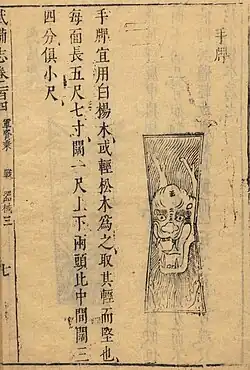 手牌
手牌宜用白楊木或輕松木為之取其輕而堅也
每面長五尺七寸闊一尺上下兩頭比中間闊三
四分俱小尺
武備志卷一百四 軍資乗 戰 器械三 七